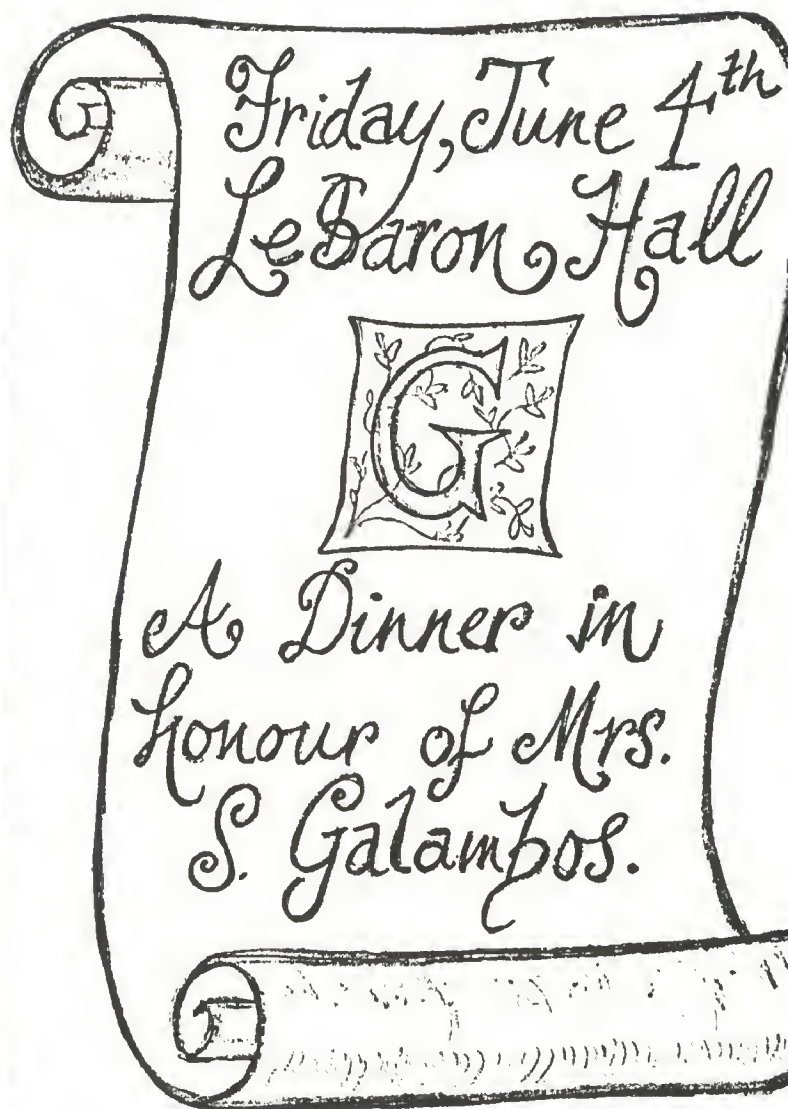 Friday, June 4th
LeBaron Hall
G
A Dinner in
honour of Mrs.
S. Galambos.